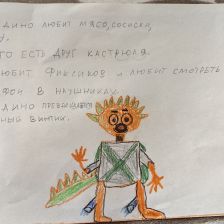 ДИНО ЛЮБИТ МЯСО, СОСИСКИ,
ГО ЕСТЬ ДРУГ КАСТРЮЛЯ.
ЮБИТ ФИКСИКОВ И ЛЮБИТ СМОТРЕТЬ
ФОН В НАУШНИКАХ.
ДИНО ПРЕВРАЩАЕТСЯ
НЫЙ ВИНТИК.